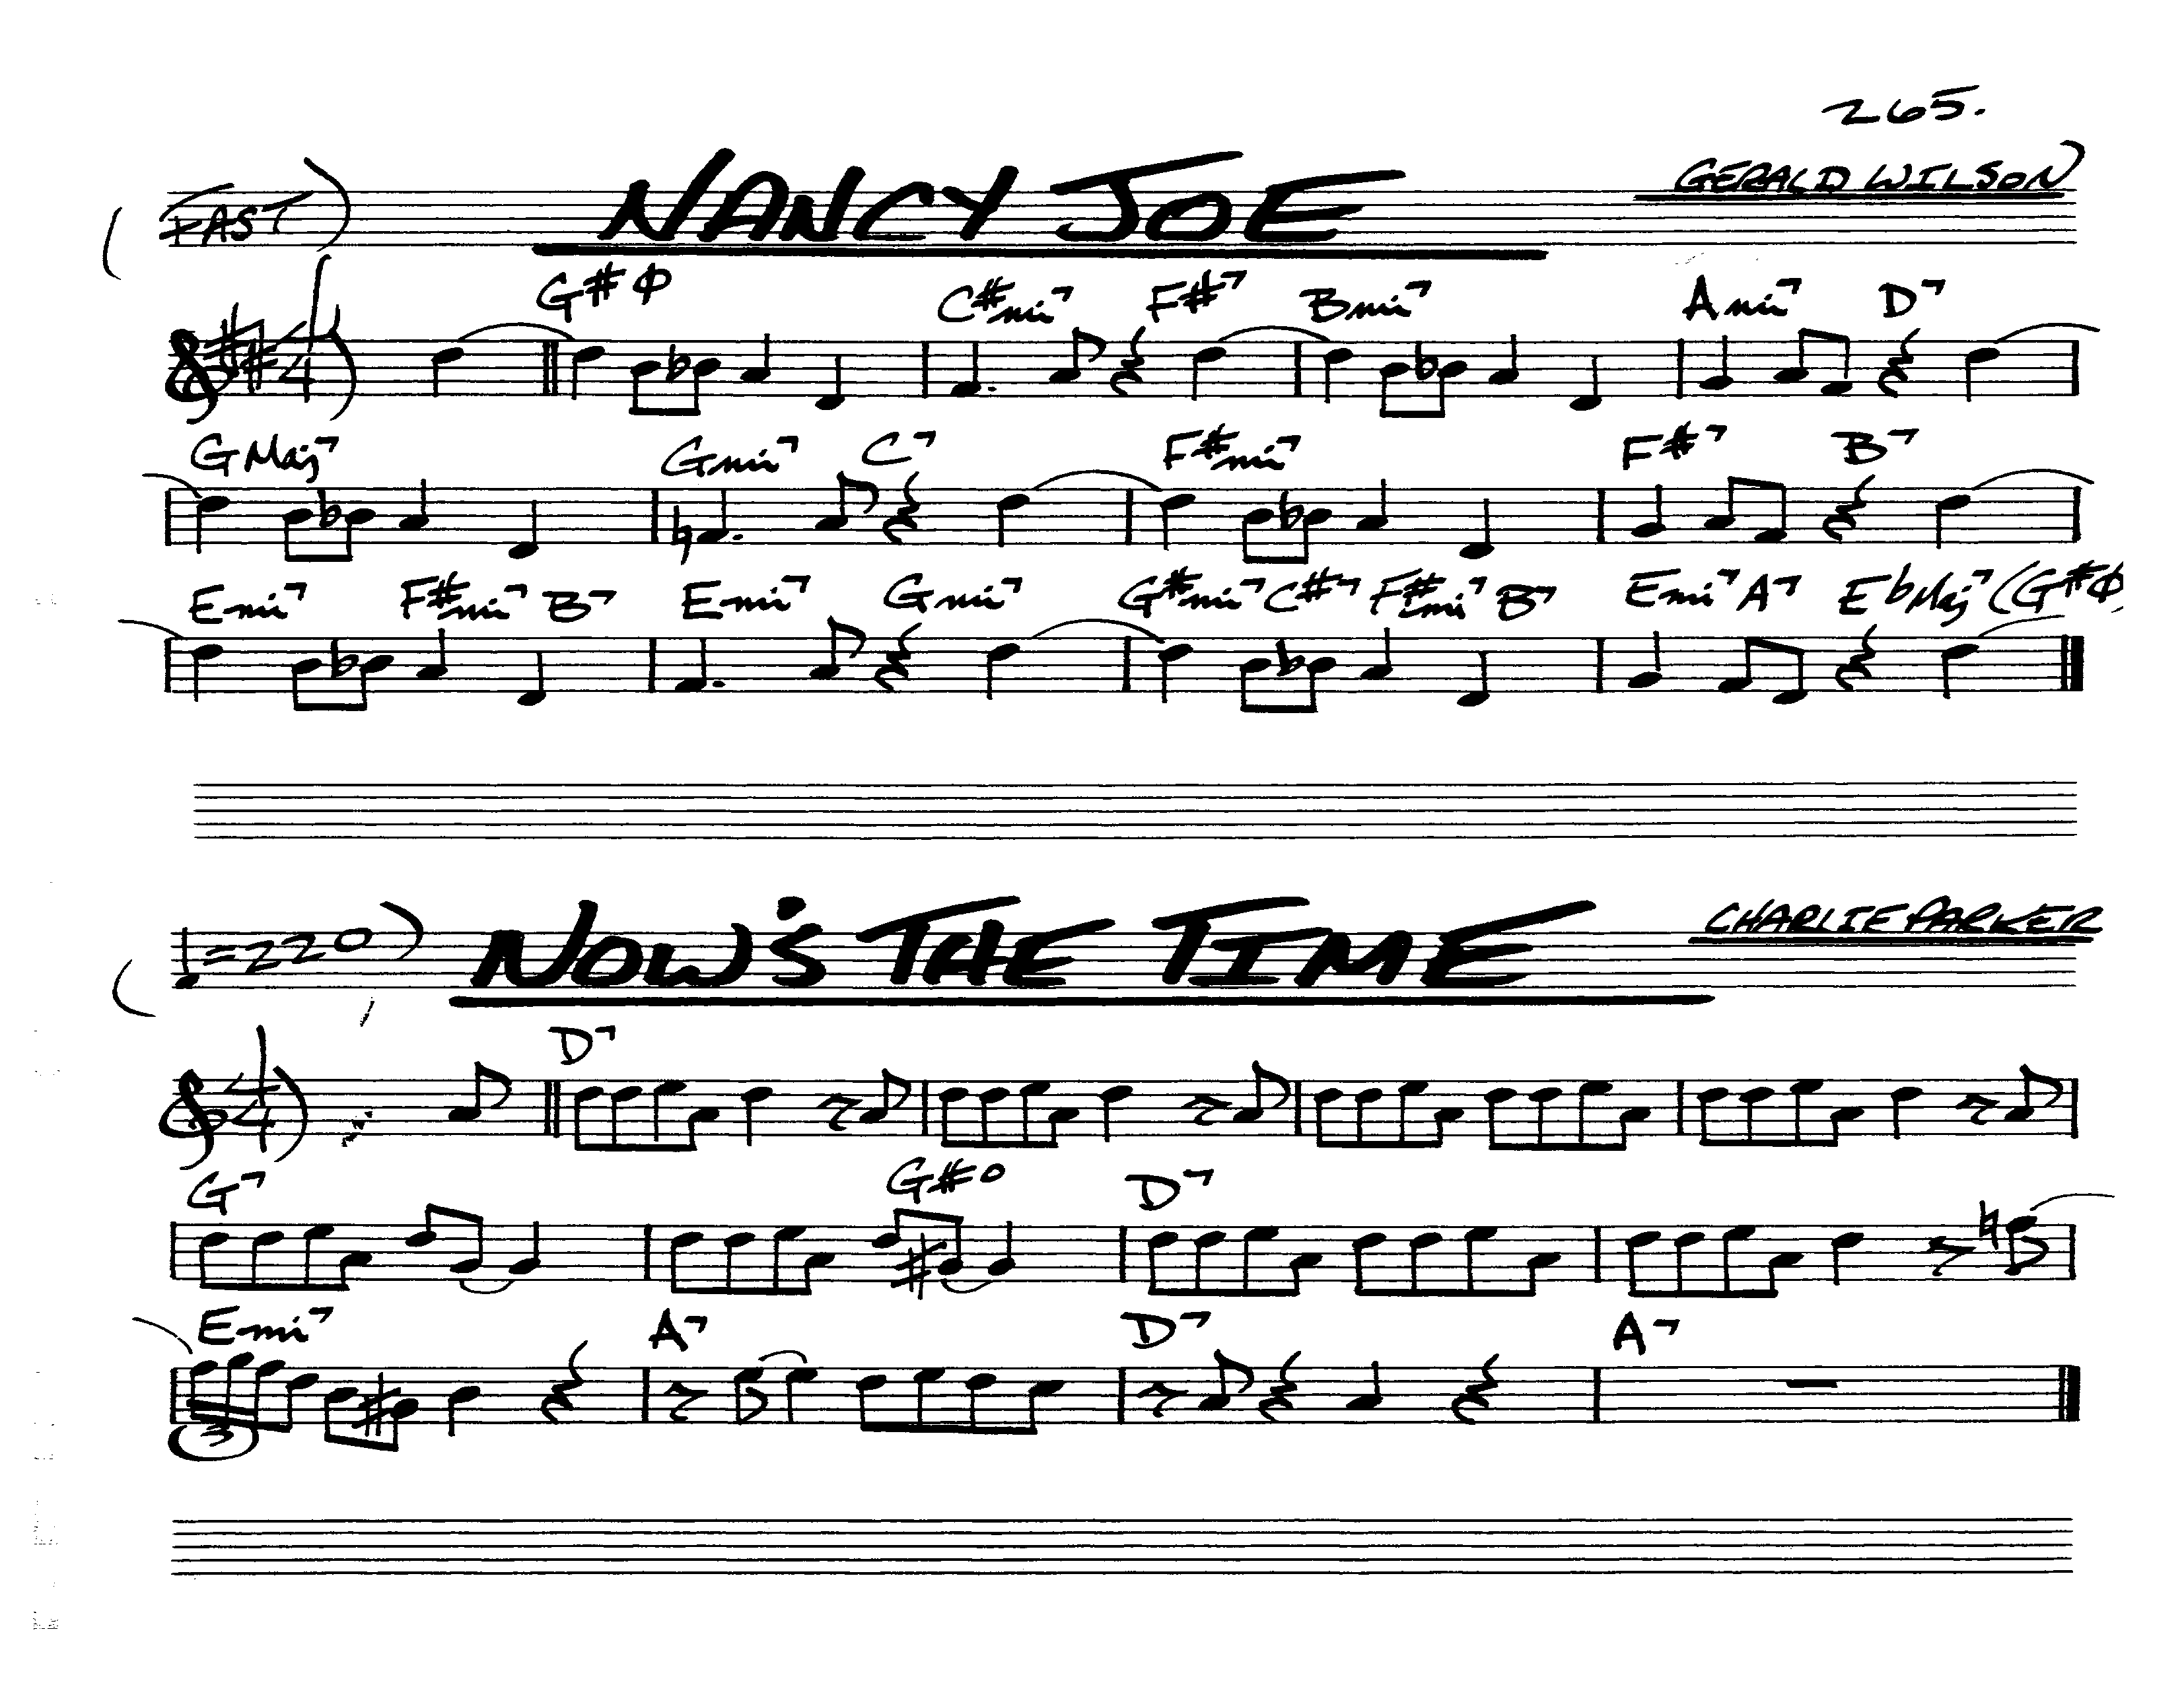 265.
(FAST) NANCY JOE GERALD WILSON
G#ø C#mi7 F#7 Bmi7 Ami7 D7
4
GMaj7 Gmi7 C7 F#mi7 F#7 B7
Emi7 F#mi7 B7 Emi7 Gmi7 G#mi7 C#7 F#mi7 B7 Emi7 A7 EbMaj7 (G#ø
(♩=220) NOW'S THE TIME CHARLIE PARKER
D7
4
G7 G#o D7
Emi7 A7 D7 A7
3